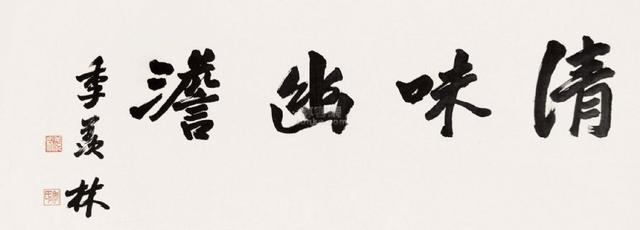 清味幽澹
季羡林